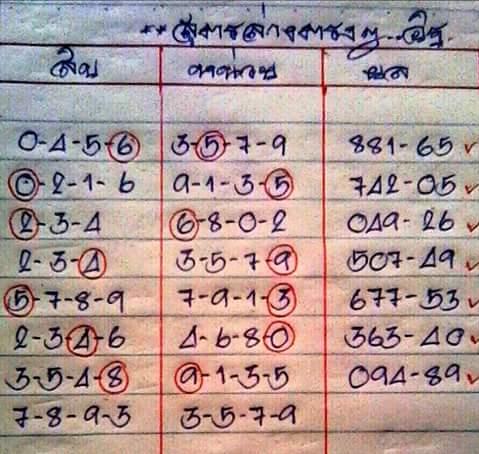 สิบ หน่วย ผล
0-4-5-6 3-5-7-9 881-65 ✓
0-2-1-6 9-1-3-5 742-05 ✓
2-3-4 6-8-0-2 049-26 ✓
2-3-4 3-5-7-9 507-49 ✓
5-7-8-9 7-9-1-3 677-53 ✓
2-3-4-6 4-6-8-0 363-40 ✓
3-5-4-8 9-1-3-5 094-89 ✓
7-8-9-3 3-5-7-9